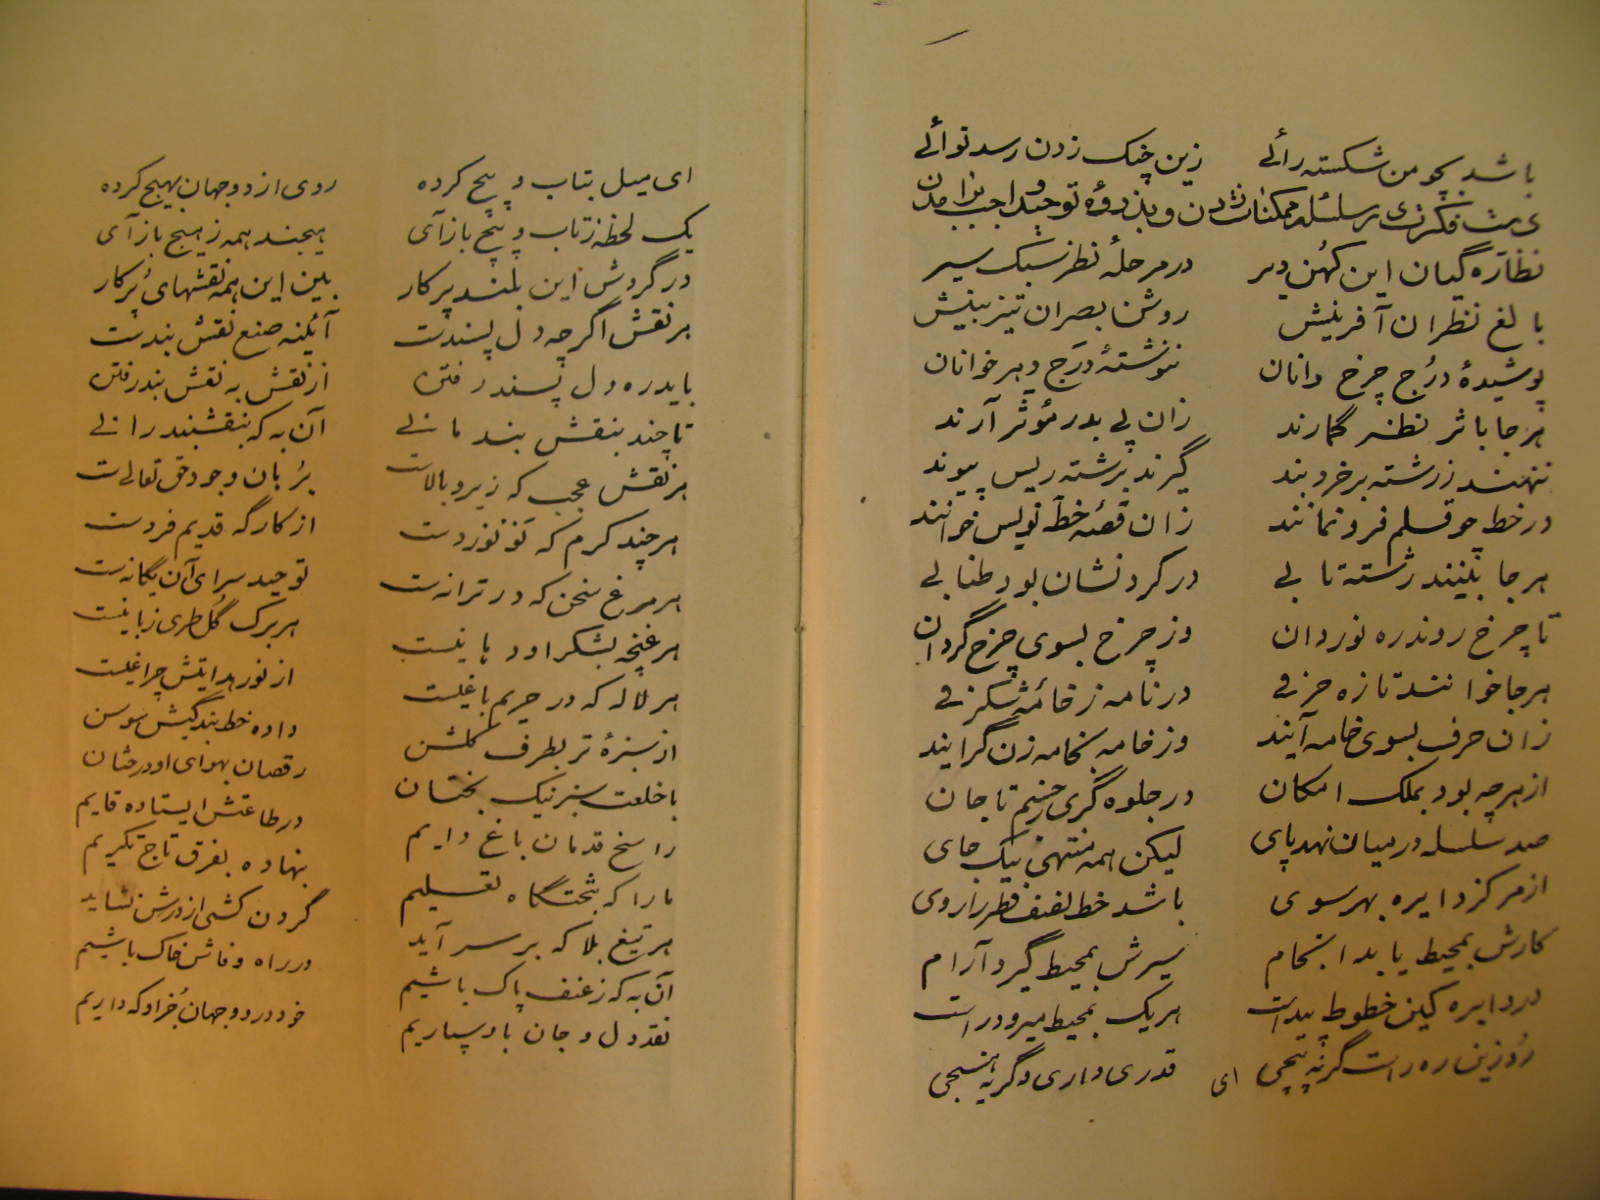 باشد بچو من شکسته رائے زین چنک زدن رسد نوائے
نظاره گیان این کهن دیر در مرحلهٔ نظر سبک سیر
بالغ نظران آفرینش روشن بصران تیز بینش
پوشیدهٔ درُج چرخ دانان ننوشتهٔ درَج دهر خوانان
هر جا باثر نظر گمارند زان پی بدر مؤثر آرند
ننهند ز رشته بر خرد بند گیرند برشته ریس پیوند
در خط چو قلم فرو نمانند زان قصهٔ خط نویس خوانند
هر جا بینند رشته تابے در کردنشان بود طنابے
تا چرخ روندره نوردان وز چرخ بسوی چرخ گردان
هر جا خوانند تازه حرفے در نامه ز خامهٔ شکرفے
زان حرف بسوی خامه آیند وز خامه بخامه زن گرایند
از هرچه بود بملک امکان در جلوه گری ز جسم تا جان
صد سلسله در میان نهد پای لیکن همه منتهی بیک جای
از مرکز دایره بهر سوی باشد خط نصف قطر را روی
کارش بمحیط یابد انجام سیرش بمحیط گیرد آرام
در دایره کین خطوط پیداست هر یک بمحیط میرود راست
رُو زین ره راست گر نه پیچی قدری داری و گر نه هیچی
ای
ای میل بتاب و پیچ کرده روی از دو جهان بهیچ کرده
یک لحظه ز تاب و پیچ باز آی هیچند همه ز هیچ باز آی
در گردش این بلند پرکار بین این همه نقشهای پُرکار
هر نقش اگرچه دل پسندست آئینه صنع نقش بندست
باید ره دل پسند رفتن از نقش به نقش بند رفتن
تا چند بنقش بند مانے آن به که بنقشبند رانے
هر نقش عجب که زیر و بالاست برُبان وجود حق تعالے ست
هر چند کرم که نَو نوردست از کارگه قدیم فردست
هر مرغ سخن که در ترانه ست توحید سرای آن یگانه ست
هر غنچه بشکر او دهانیست هر برک گُل طری زبانیست
هر لاله که در حریم باغیست از نور هدایتش چراغیست
از سبزهٔ تر بطرف گلشن داده خط بندگیش سوسن
با خلعت سبز نیک بختان رقصان بهوای او درختان
راسخ قدمان باغ دایم در طاعتش ایستاده قایم
ما را که بتختگاه تعسلیم بنهاده بفرق تاج تکریم
هر تیغ بلا که بر سر آید گردن کشی از درش نشاید
آن به که ز عنف پاک باشیم در راه وفاش خاک باشیم
نقد دل و جان باو سپاریم خود در دو جهان جُز او که داریم